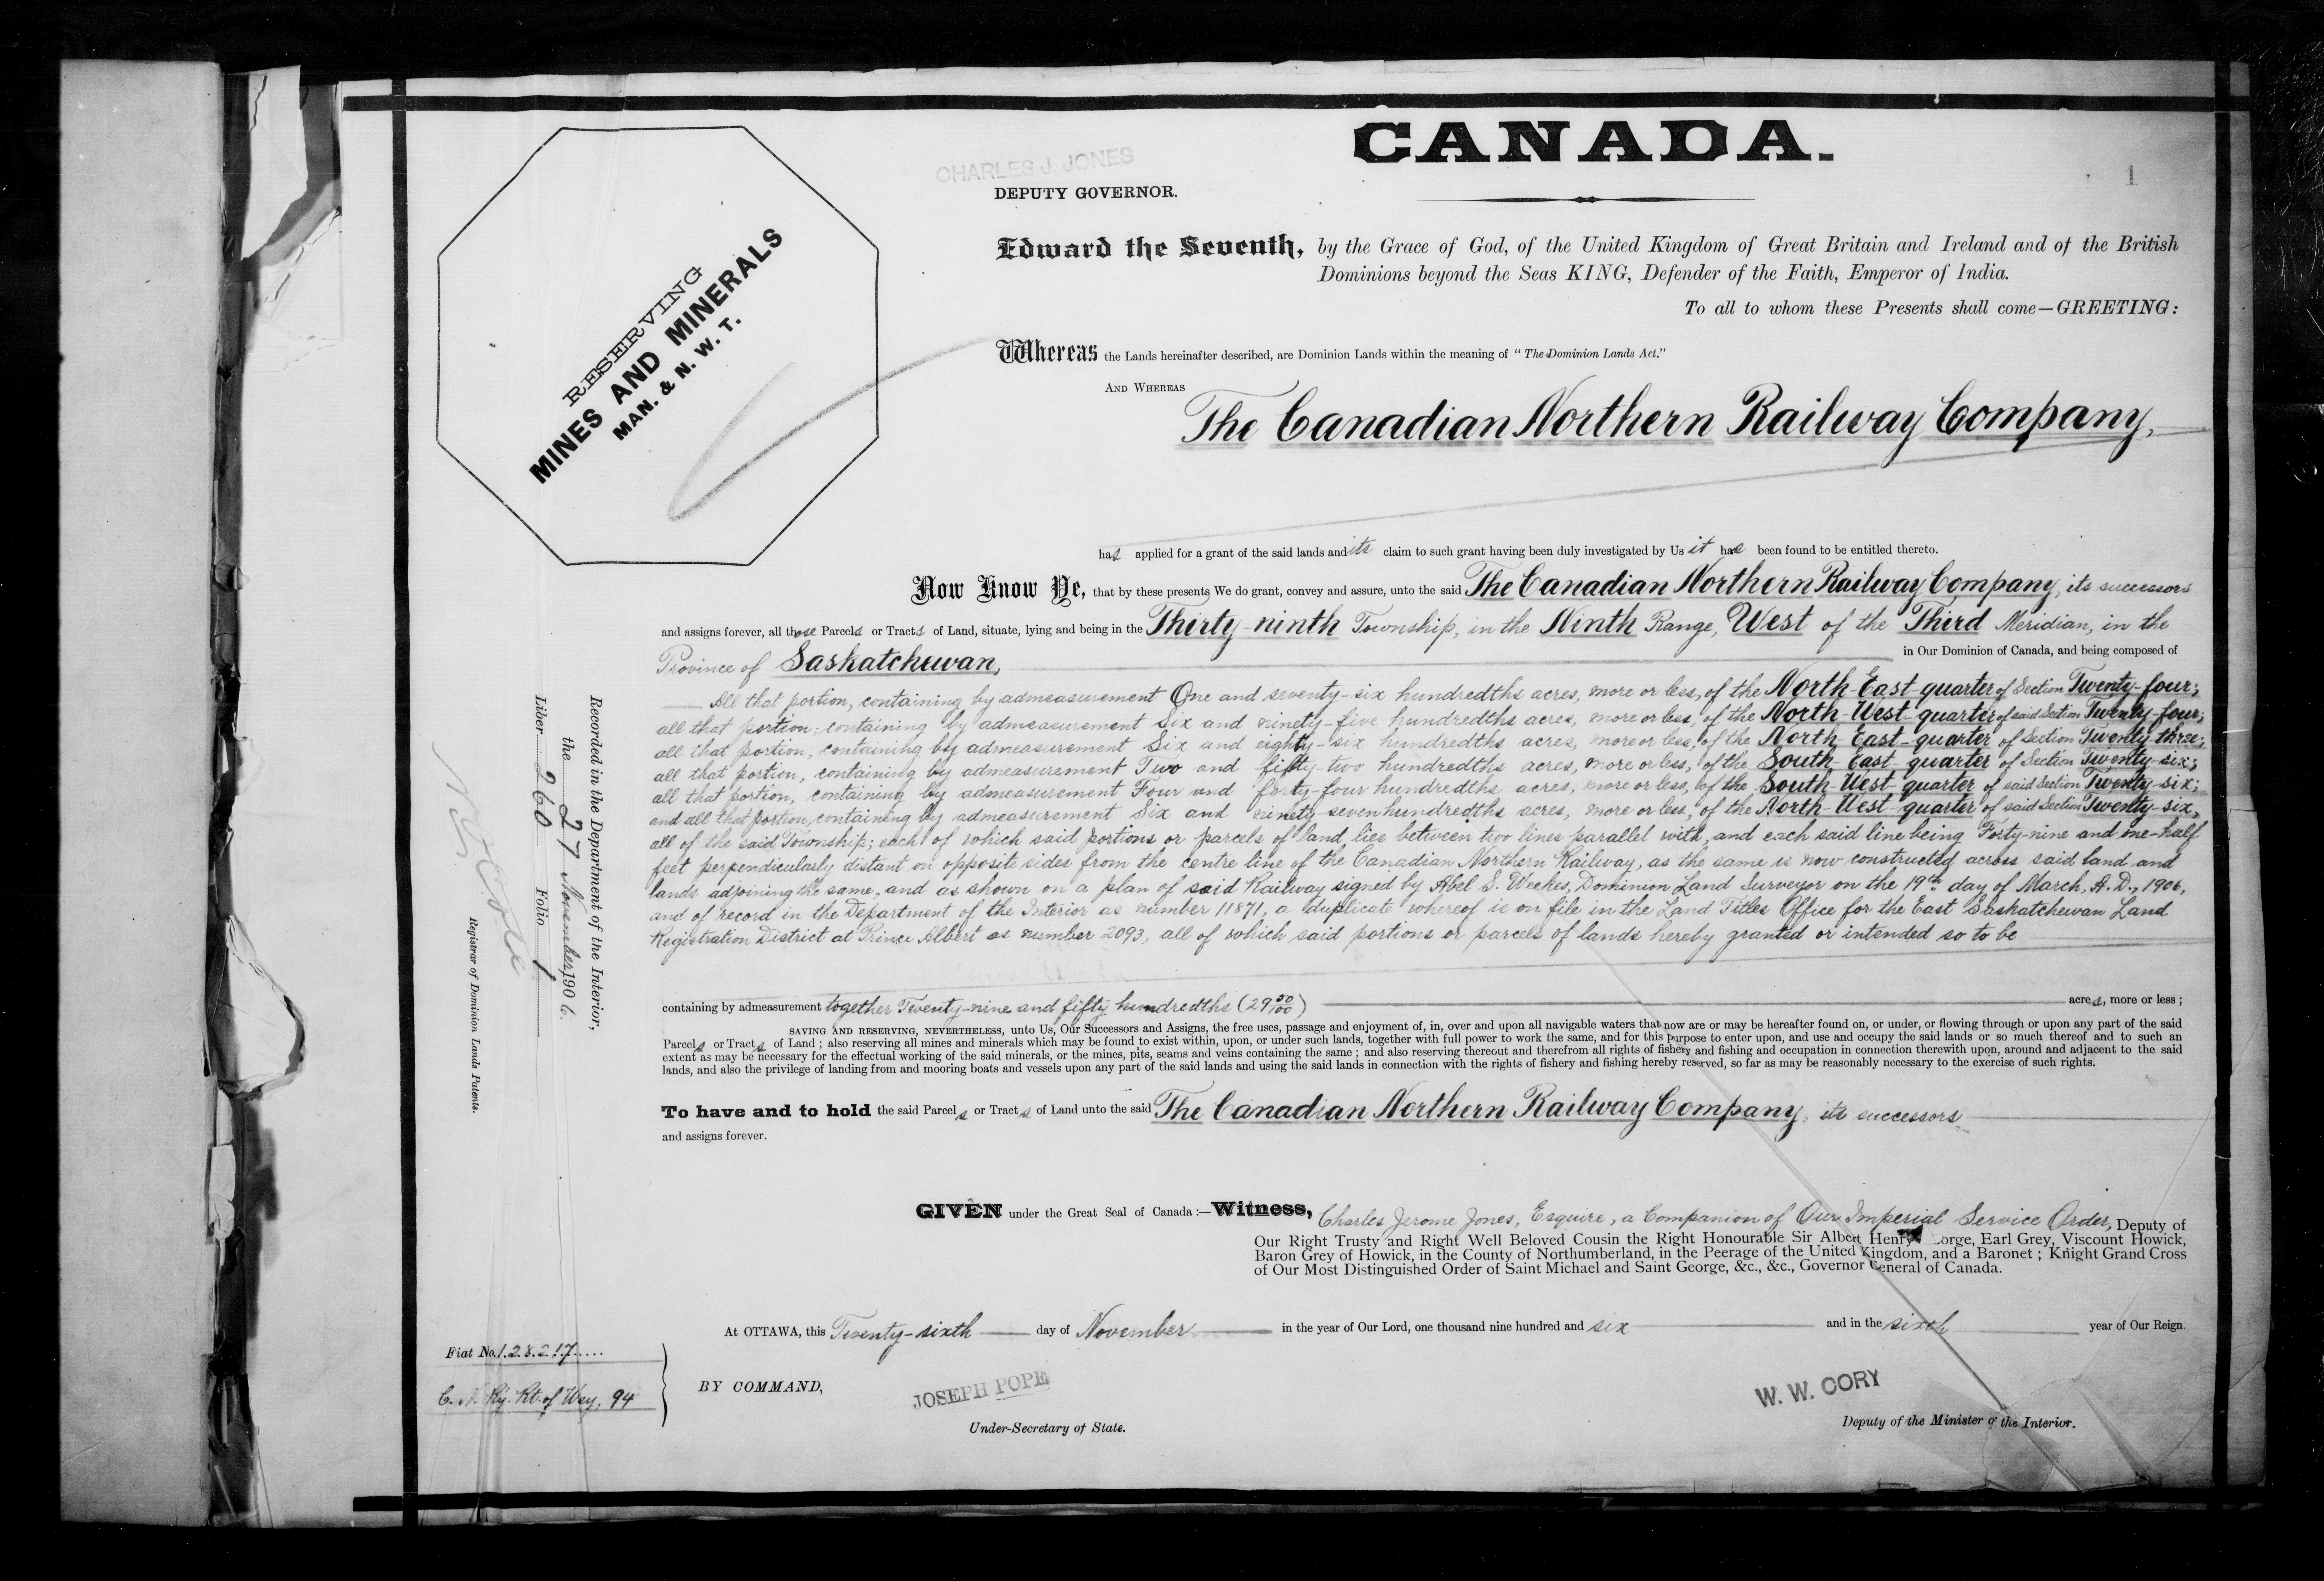 CANADA.
1
CHARLES J. JONES
DEPUTY GOVERNOR.
RESERVING
MINES AND MINERALS
MAN. & N. W. T.
Edward the Seventh, by the Grace of God, of the United Kingdom of Great Britain and Ireland and of the British
Dominions beyond the Seas KING, Defender of the Faith, Emperor of India.
To all to whom these Presents shall come—GREETING:
Whereas the Lands hereinafter described, are Dominion Lands within the meaning of "The Dominion Lands Act."
AND WHEREAS
The Canadian Northern Railway Company,
has applied for a grant of the said lands and its claim to such grant having been duly investigated by Us it has been found to be entitled thereto.
Now Know Ye, that by these presents We do grant, convey and assure, unto the said The Canadian Northern Railway Company, its successors
and assigns forever, all those Parcels or Tracts of Land, situate, lying and being in the Thirty-ninth Township, in the Ninth Range, West of the Third Meridian, in the
Province of Saskatchewan, in Our Dominion of Canada, and being composed of
All that portion, containing by admeasurement One and seventy-six hundredths acres, more or less, of the North-East-quarter of Section Twenty-four;
all that portion, containing by admeasurement Six and ninety-five hundredths acres, more or less, of the North-West-quarter of said Section Twenty-four;
all that portion, containing by admeasurement Six and eighty-six hundredths acres, more or less, of the North East-quarter of Section Twenty three;
all that portion, containing by admeasurement Two and fifty-two hundredths acres, more or less, of the South-East-quarter of Section Twenty-six;
all that portion, containing by admeasurement Four and forty-four hundredths acres, more or less, of the South-West-quarter of said Section Twenty-six;
and all that portion, containing by admeasurement Six and ninety-seven hundredths acres, more or less, of the North-West-quarter of said Section Twenty-six,
all of the said Township; each of which said portions or parcels of land lies between two lines parallel with, and each said line being Forty-nine and one-half
feet perpendicularly distant on opposite sides from the centre line of the Canadian Northern Railway, as the same is now constructed across said land and
lands adjoining the same, and as shown on a plan of said Railway signed by Abel S. Weekes, Dominion Land Surveyor on the 19th day of March, A.D., 1906,
and of record in the Department of the Interior as number 11871, a duplicate whereof is on file in the Land Titles Office for the East Saskatchewan Land
Registration District at Prince Albert as number 2093, all of which said portions or parcels of lands hereby granted or intended so to be
containing by admeasurement together Twenty-nine and fifty hundredths (29 50/100) acres, more or less;
SAVING AND RESERVING, NEVERTHELESS, unto Us, Our Successors and Assigns, the free uses, passage and enjoyment of, in, over and upon all navigable waters that now are or may be hereafter found on, or under, or flowing through or upon any part of the said
Parcels or Tracts of Land; also reserving all mines and minerals which may be found to exist within, upon, or under such lands, together with full power to work the same, and for this purpose to enter upon, and use and occupy the said lands or so much thereof and to such an
extent as may be necessary for the effectual working of the said minerals, or the mines, pits, seams and veins containing the same; and also reserving thereout and therefrom all rights of fishery and fishing and occupation in connection therewith upon, around and adjacent to the said
lands, and also the privilege of landing from and mooring boats and vessels upon any part of the said lands and using the said lands in connection with the rights of fishery and fishing hereby reserved, so far as may be reasonably necessary to the exercise of such rights.
To have and to hold the said Parcels or Tracts of Land unto the said The Canadian Northern Railway Company, its successors
and assigns forever.
GIVEN under the Great Seal of Canada:—Witness, Charles Jerome Jones, Esquire, a Companion of Our Imperial Service Order, Deputy of
Our Right Trusty and Right Well Beloved Cousin the Right Honourable Sir Albert Henry orge, Earl Grey, Viscount Howick,
Baron Grey of Howick, in the County of Northumberland, in the Peerage of the United Kingdom, and a Baronet; Knight Grand Cross
of Our Most Distinguished Order of Saint Michael and Saint George, &c., &c., Governor General of Canada.
At OTTAWA, this Twenty-sixth day of November in the year of Our Lord, one thousand nine hundred and six and in the sixth year of Our Reign.
BY COMMAND,
JOSEPH POPE
Under-Secretary of State.
W. W. CORY
Deputy of the Minister of the Interior.
Fiat No. 128217
C. N. Ry. Rt. of Way, 94
Recorded in the Department of the Interior,
the 27 November, 1906.
Liber 260 Folio 1
Registrar of Dominion Lands Patents.